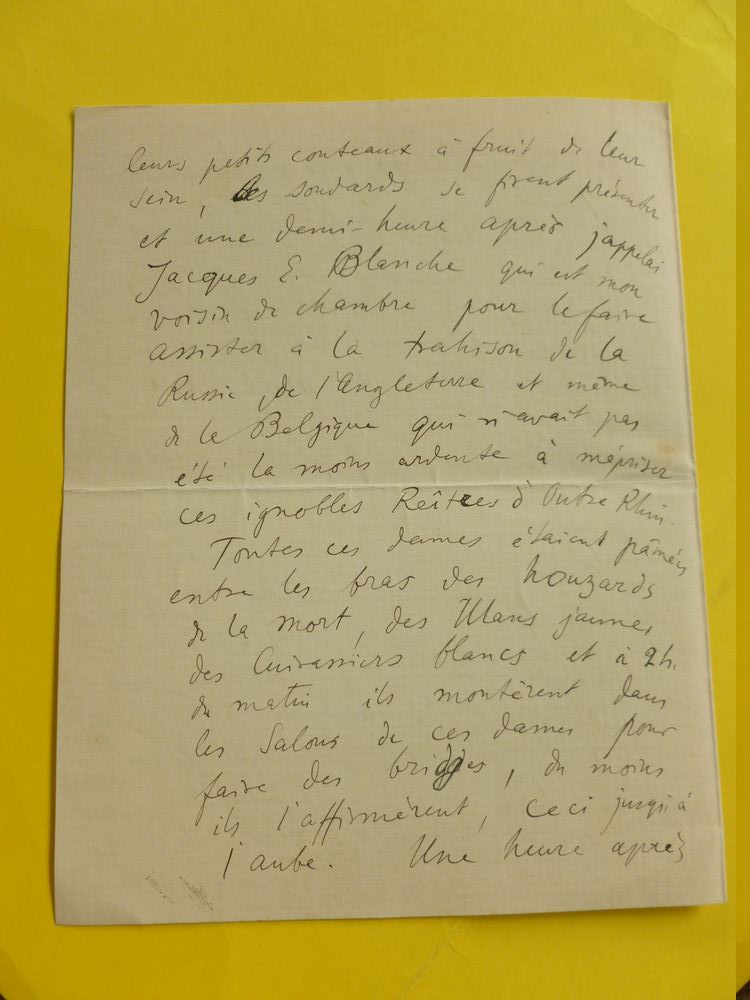 leurs petits couteaux à fruit de leur
sein, les soudards se firent présenter
et une demi-heure après j'appelai
Jacques E. Blanche qui est mon
voisin de chambre pour le faire
assister à la trahison de la
Russie, de l'Angleterre et même
de la Belgique qui n'avait pas
été la moins ardente à mépriser
ces ignobles Reîtres d'Outre Rhin.
Toutes ces dames étaient pâmées
entre les bras des houzards
de la mort, des Ulans jaunes
des Cuirassiers blancs et à 2h.
du matin ils montèrent dans
les Salons de ces dames pour
faire des bridges, du moins
ils l'affirmèrent, ceci jusqu'à
l'aube. Une heure après